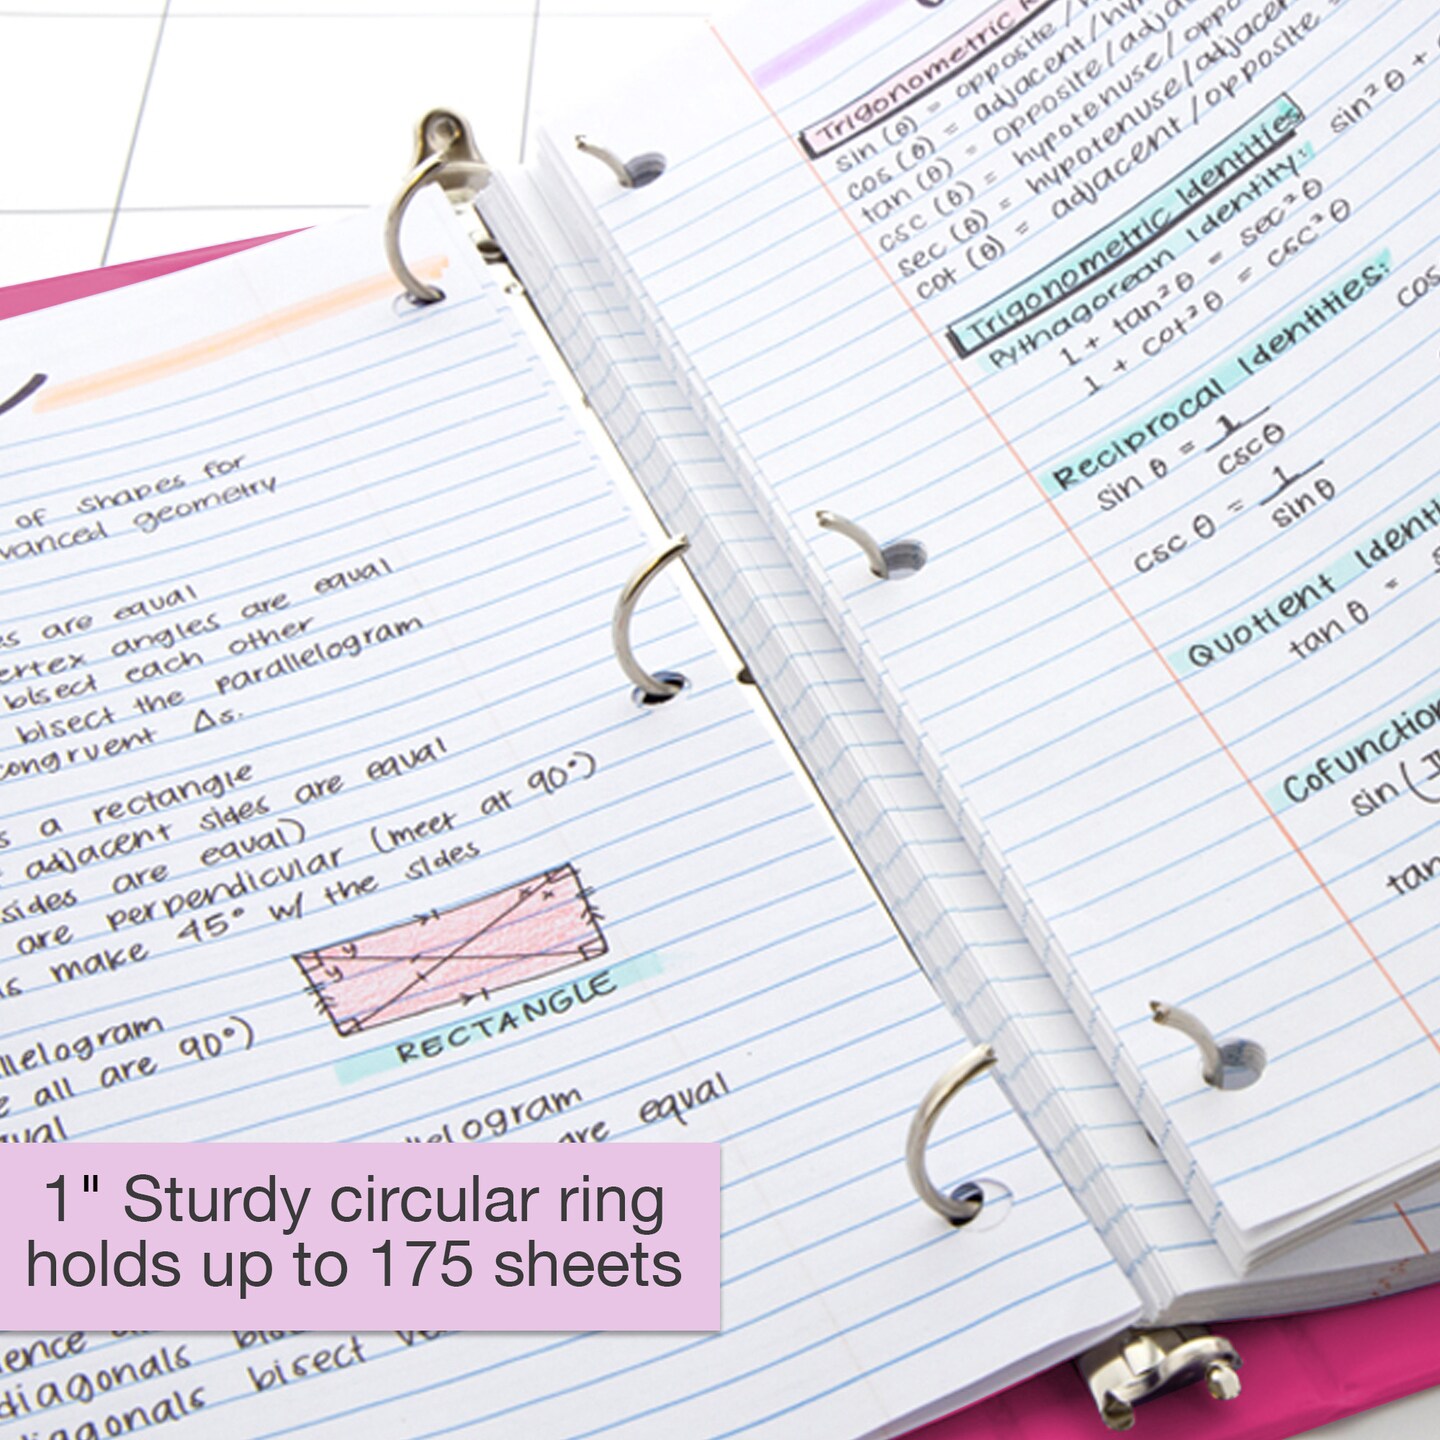 of shapes for
vanced geometry
es are equal
ertex angles are equal
bisect each other
bisect the parallelogram
congruent Δs.
s a rectangle
adjacent sides are equal
sides are equal)
are perpendicular (meet at 90°)
ls make 45° w/ the sides
RECTANGLE
llelogram
e all are 90°)
qual
llelogram
are equal
1" Sturdy circular ring
holds up to 175 sheets
ience
diagonals
diagonals bisect
Trigonometric R
sin (θ) = opposite/h
cos (θ) = adjacent/hy
tan (θ) = opposite/adja
csc (θ) = hypotenuse/oppo
sec (θ) = hypotenuse/adjacen
cot (θ) = adjacent/opposite =
Trigonometric Identities
Pythagorean Identity: sin²θ +
1 + tan²θ = sec²θ
1 + cot²θ = csc²θ
Reciprocal Identities:
cos
sin θ = 1/cscθ
csc θ = 1/sinθ
Quotient Identi
tan θ =
Cofunction
sin (
tan